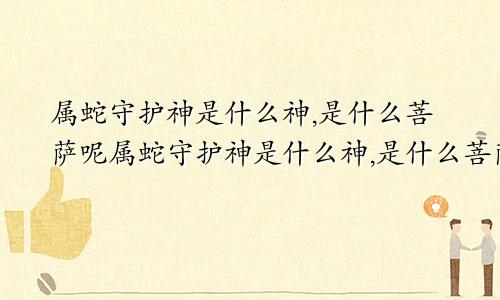 属蛇守护神是什么神,是什么菩
萨呢属蛇守护神是什么神,是什么菩萨